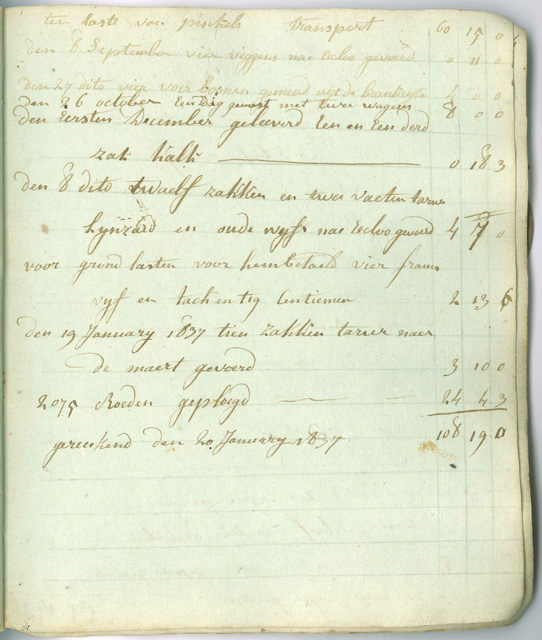 ten laste von pinkels transport 60 15 0
den 8 September vier viggens nae Ecloo gevoerd 0 11 0
den 27 dito vier voer boonen gemend uyt de 4 0 0
den 26 october Een dag gevoert met twee wagens 8 0 0
den Eersten December geleeverd Een en Een derd
zak kalk 0 18 3
den 8 dito twaelf zakken en twee vaeten tarwe
lynzaed en oude wyfs nae Eecloo gevoerd 4 7 0
voor grond lasten voor hem betaeld vier francs
vyf en tachentig Centiemen 2 13 6
den 19 January 1837 tien zakken tarwe naer
de maert gevoerd 3 10 0
2075 Roeden geploegd 24 4 3
gereekend den 20 January 1837 108 19 0